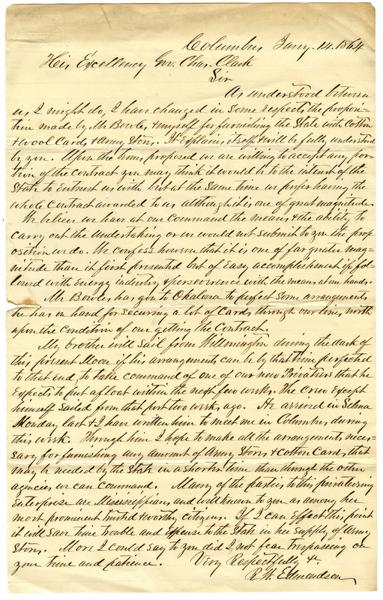 Columbus Jany. 14. 1864
His Excellency Gov. Chas. Clark
Sir
As understood between
us I might do, I have changed in some respects the proposi-
tion made by Mr Bowles & myself for furnishing the State with Cotton
& Wool Cards & Army Stores. It explains itself & will be fully understood
by you. Upon the terms proposed we are willing to accept any por-
tion of the contract you may think it would be to the interest of the
State to entrust us with but at the same time we prefer having the
whole Contract awarded to us although it is one of great magnitude.
We believe we have at our Command the means & the ability to
carry out the undertaking or we would not submit to you the prop
osition we do. We confess however that it is one of far greater mag-
nitude than it first presented but of easy accomplishment if fol-
lowed with energy industry & perseverence with the means at our hands.
Mr Bowles has gone to Okalona to perfect some arrangements
he has on hand for securing a lot of Cards through our lines north
upon the Condition of our getting the Contract.
My brother will sail from Willmington during the dark of
this present Moon if his arrangements can be by that time perfected
to that end, to take command of one of our new Privatiers that he
expects to put afloat within the next few weeks. The crew except
himself sailed from that port two weeks ago. He arrived in Selma
Monday last & I have written him to meet me in Columbus during
this week. Through him I hope to make all the arrangements neces-
sary for furnishing any amount of Army Stores & Cotton Cards that
may be needed by the State in a shorter time than through the other
agencies we can Command. Many of the parties to this privatiering
Enterprise are Mississippians and well known to you as among her
most prominent trusted worthy citizens. If I can effect this point
it will save time trouble and expense to the State in her supply of Army
Stores. More I could say to you did I not fear trespassing on
your time and patience. Very Respectfully &c.
R. W. Edmondson